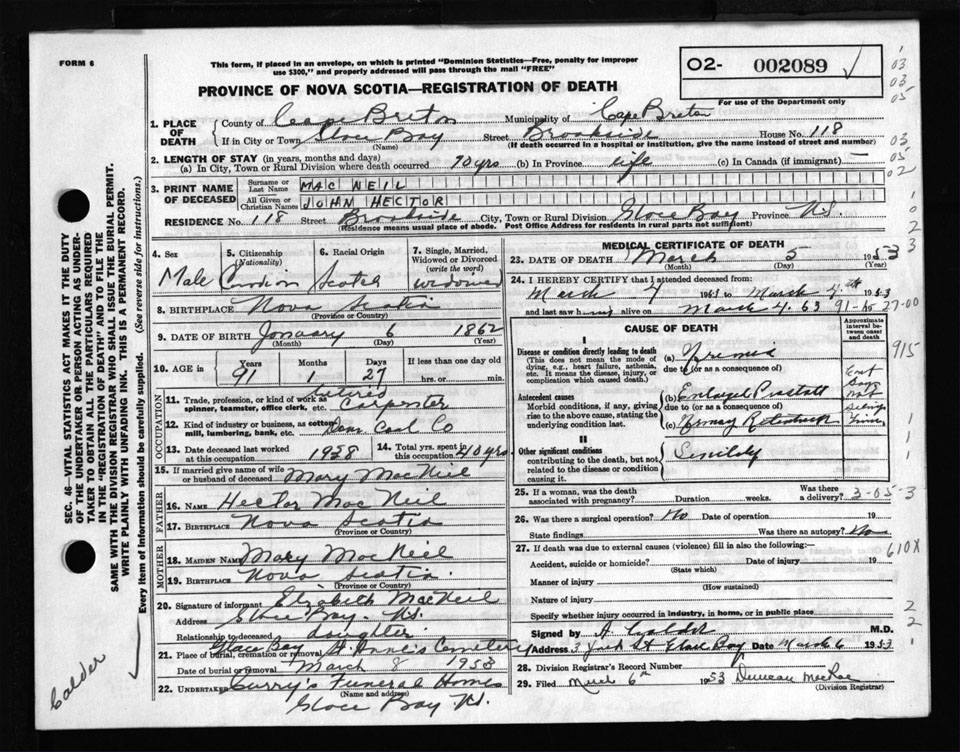 FORM 6
This form, if placed in an envelope, on which is printed "Dominion Statistics—Free, penalty for improper
use $300," and properly addressed will pass through the mail "FREE"
O2- 002089
For use of the Department only
PROVINCE OF NOVA SCOTIA—REGISTRATION OF DEATH
1. PLACE OF DEATH
County of Cape Breton Municipality of Cape Breton
If in City or Town Glace Bay Street Brookside House No. 118
(Name) (If death occurred in a hospital or institution, give the name instead of street and number)
2. LENGTH OF STAY (in years, months and days)
(a) In City, Town or Rural Division where death occurred 70 yrs (b) In Province life (c) In Canada (if immigrant) —
3. PRINT NAME OF DECEASED
Surname or Last Name MAC NEIL
All Given or Christian Names JOHN HECTOR
RESIDENCE No. 118 Street Brookside City, Town or Rural Division Glace Bay Province N.S.
(Residence means usual place of abode. Post Office Address for residents in rural parts not sufficient)
4. Sex Male
5. Citizenship (Nationality) Canadian
6. Racial Origin Scotch
7. Single, Married, Widowed or Divorced (write the word) widowed
8. BIRTHPLACE Nova Scotia
(Province or Country)
9. DATE OF BIRTH January 6 1862
(Month) (Day) (Year)
10. AGE in Years 91 Months 1 Days 27 If less than one day old hrs. or min.
OCCUPATION
11. Trade, profession, or kind of work as spinner, teamster, office clerk, etc. retired Carpenter
12. Kind of industry or business, as cotton mill, lumbering, bank, etc. Dom Coal Co
13. Date deceased last worked at this occupation 1928
14. Total yrs. spent in this occupation 40 yrs
15. If married give name of wife or husband of deceased Mary MacNeil
FATHER
16. NAME Hector MacNeil
17. BIRTHPLACE Nova Scotia
(Province or Country)
MOTHER
18. MAIDEN NAME Mary MacNeil
19. BIRTHPLACE Nova Scotia
(Province or Country)
20. Signature of informant Elizabeth MacNeil
Address Glace Bay. N.S.
Relationship to deceased daughter
21. Place of burial, cremation or removal Glace Bay St. Anne's Cemetery
Date of burial or removal March 8 1953
22. Undertaker Curry's Funeral Homes
(Name and address)
Glace Bay N.S.
MEDICAL CERTIFICATE OF DEATH
23. DATE OF DEATH March 5 1953
(Month) (Day) (Year)
24. I HEREBY CERTIFY that I attended deceased from:
March 4th 1953
and last saw h alive on March 4.
CAUSE OF DEATH
Approximate interval between onset and death
I
Disease or condition directly leading to death
(This does not mean the mode of dying, e.g., heart failure, asthenia, etc. It means the disease, injury, or complication which caused death.)
(a) Uremia
due to (or as a consequence of)
Antecedent causes
Morbid conditions, if any, giving rise to the above cause, stating the underlying condition last.
(b) Enlarged Prostate
due to (or as a consequence of)
(c) Urinary Retention
II
Other significant conditions
contributing to the death, but not related to the disease or condition causing it.
Senility
25. If a woman, was the death associated with pregnancy? Duration weeks. Was there a delivery?
3-05-3
26. Was there a surgical operation? No Date of operation 19
State findings Was there an autopsy? No
27. If death was due to external causes (violence) fill in also the following:—
Accident, suicide or homicide? Date of injury 19
(State which)
Manner of injury
(How sustained)
Nature of injury
Specify whether injury occurred in industry, in home, or in public place
Signed by M.D.
Address Glace Bay Date March 6 1953
28. Division Registrar's Record Number
29. Filed March 6th 1953 Duncan MacRae
(Division Registrar)
SEC. 46—VITAL STATISTICS ACT MAKES IT THE DUTY
OF THE UNDERTAKER OR PERSON ACTING AS UNDER-
TAKER TO OBTAIN ALL THE PARTICULARS REQUIRED
IN THE "REGISTRATION OF DEATH" AND TO FILE THE
SAME WITH THE DIVISION REGISTRAR WHO SHALL ISSUE THE BURIAL PERMIT.
WRITE PLAINLY WITH UNFADING INK. THIS IS A PERMANENT RECORD.
Every item of Information should be carefully supplied. (See reverse side for instructions.)
Calder
915
610X